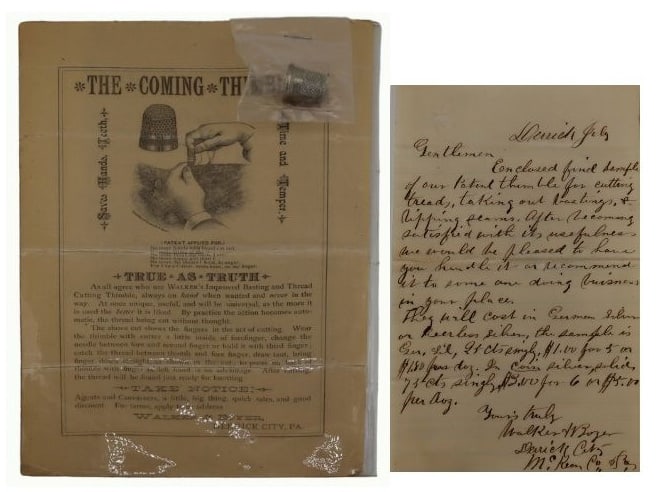 THE COMING TH
Saves Hands, Teeth,
Time and Temper.
(PATENT APPLIED FOR.)
TRUE AS TRUTH
An all agree who use WALKER'S Improved Basting and Thread
Cutting Thimble, always on hand when wanted and never in the
way. At once unique, useful, and will be universal, as the more it
is used the better it is liked. By practice the action becomes auto-
matic, the thread being cut without thought.
The above cut shows the fingers in the act of cutting. Wear
the thimble with cutter a little inside of forefinger; change the
needle between fore and second finger or hold it with third finger;
catch the thread between thumb and fore finger, draw taut, bring
the thread will be found just ready for knotting.
TAKE NOTICE:
Agents and Canvassers, a little, big thing, quick sales, and good
discount. For terms, apply to address
WALKER &
DERRICK CITY, PA.
Derrick
Gentlemen
Enclosed find sample
of our Patent thimble for cutting
tread, taking out bastings, &
ripping seams. After becoming
satisfied with its usefulness
we would be pleased to have
you handle it or recommend
it to some one doing
in your place.
They will cost in German Silver
or Peerless Silver, the sample is
Ger. Sil, 25 cts singly, $1.00 for 5 or
per doz. In Coin silver, solid,
75 cts singly, $3.00 for 6 or $5.00
per doz.
Yours truly
Walker &
City
McKean Co